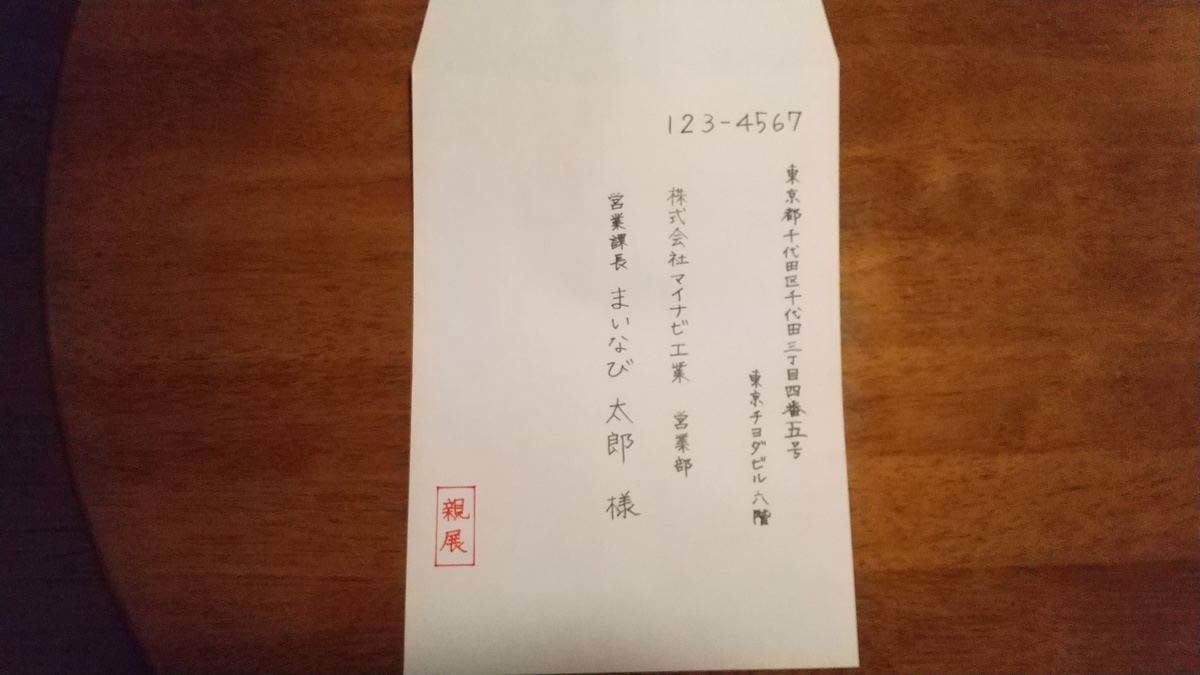 123-4567
東京都千代田区千代田三丁目四番五号
東京チヨダビル六階
株式会社マイナビ工業 営業部
営業課長 まいなび 太郎 様
親展